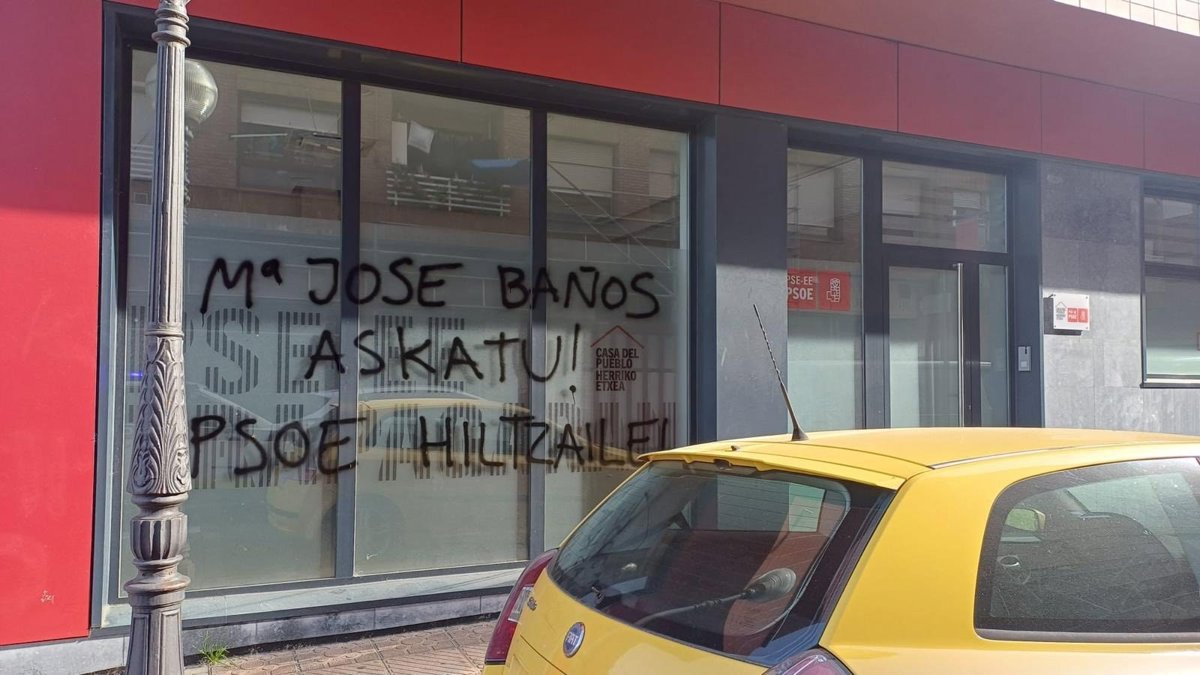 Mª JOSE BAÑOS
ASKATU!
PSOE HILTZAILE!
PSE-EE
CASA DEL
PUEBLO
HERRIKO
ETXEA
PSE-EE
PSOE
FIAT